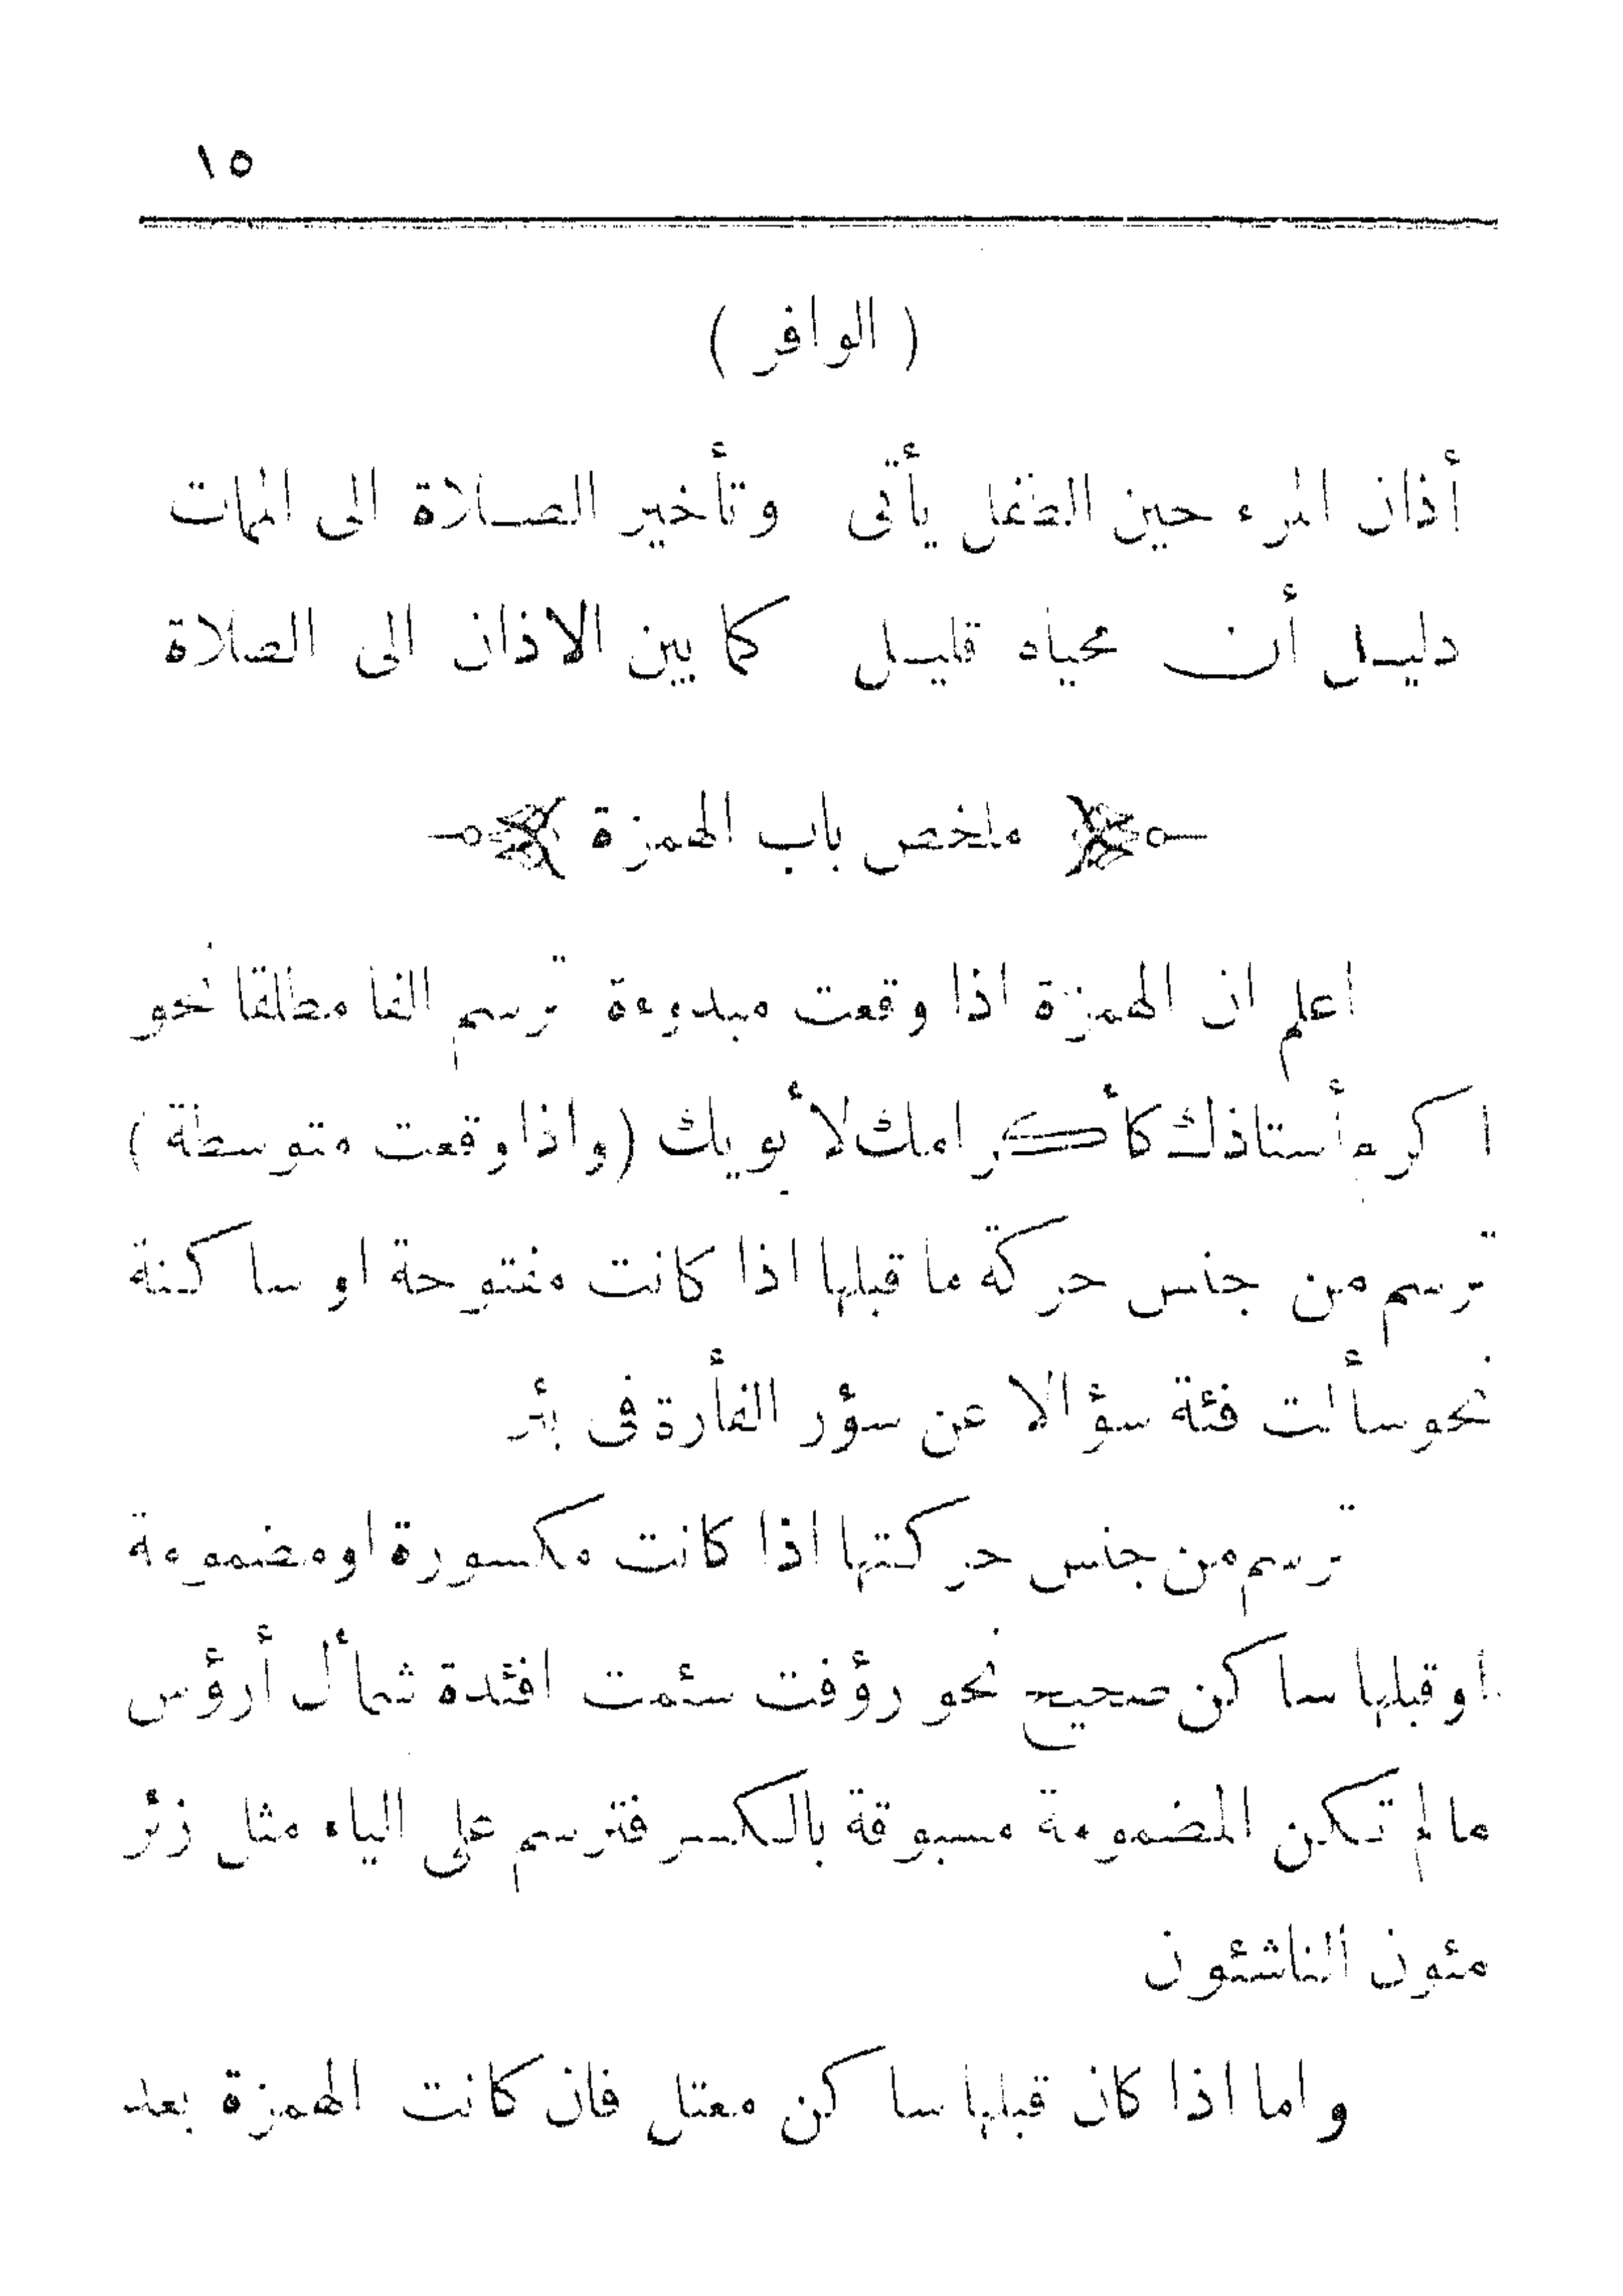 ١٥
( الوافر )
أذان المرء حين الطفل يأتى وتأخير الصلاة الى الممات
دليل أن محياه قليل كما بين الاذان الى الصلاة
ملخص باب الهمزة
اعلم ان الهمزة اذا وقعت مبدوءة ترسم الفا مطلقا نحو
اكرم أستاذك كأكرامك لأبويك (واذا وقعت متوسطة)
ترسم من جنس حركة ما قبلها اذا كانت مفتوحة او ساكنة
نحو سألت فئة سؤالا عن سؤر الفأرة فى بئر
ترسم من جنس حركتها اذا كانت مكسورة او مضمومة
او قبلها ساكن صحيح نحو رؤفت سئمت افئدة شمأل أرؤس
ما لم تكن المضمومة مسبوقة بالكسر فترسم على الياء مثل زئر
مئون الناشئون
واما اذا كان قبلها ساكن معتل فان كانت الهمزة بعد